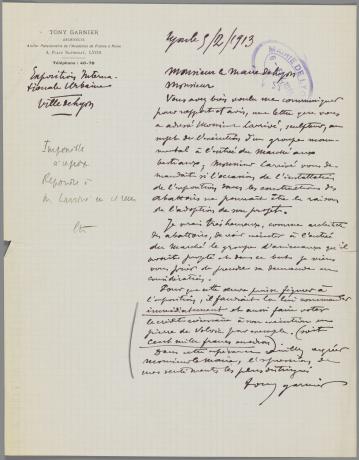 TONY GARNIER
ARCHITECTE
Ancien Pensionnaire de l'Académie de France à Rome
4, Place Sathonay, LYON
Téléphone : 40-78
Exposition Interna-
tionale Urbaine
Ville de Lyon
Répondre à
Lyon le 5/2/1913
MAIRIE DE LYON
Monsieur le Maire de Lyon
Monsieur
Vous avez bien voulu me communiquer
pour rapport et avis, une lettre que vous
a adressé Monsieur Larrivé, sculpteur, au
sujet de l'exécution d'un groupe monu-
mental à l'entrée du Marché aux
bestiaux; Monsieur Larrivé vous de-
mandait si l'occasion de l'installation
de l'exposition dans les constructions des
abattoirs ne pouvait être la raison
de l'adoption de son projet.
Je serais très heureux, comme architecte
des abattoirs, de voir exécuter à l'entrée
du Marché le groupe d'animaux qu'il
avait projeté et dans ce but je viens
vous prier de prendre sa demande en
considération.
Pour que cette œuvre puisse figurer à
l'exposition, il faudrait la lui commander
immédiatement et aussi faire voter
le crédit nécessaire à son exécution en
pierre de par exemple. (soit
cent mille francs environ)
Dans cette espérance veuillez agréer
Monsieur le Maire, l'expression de
mes sentiments les plus distingués
Tony Garnier